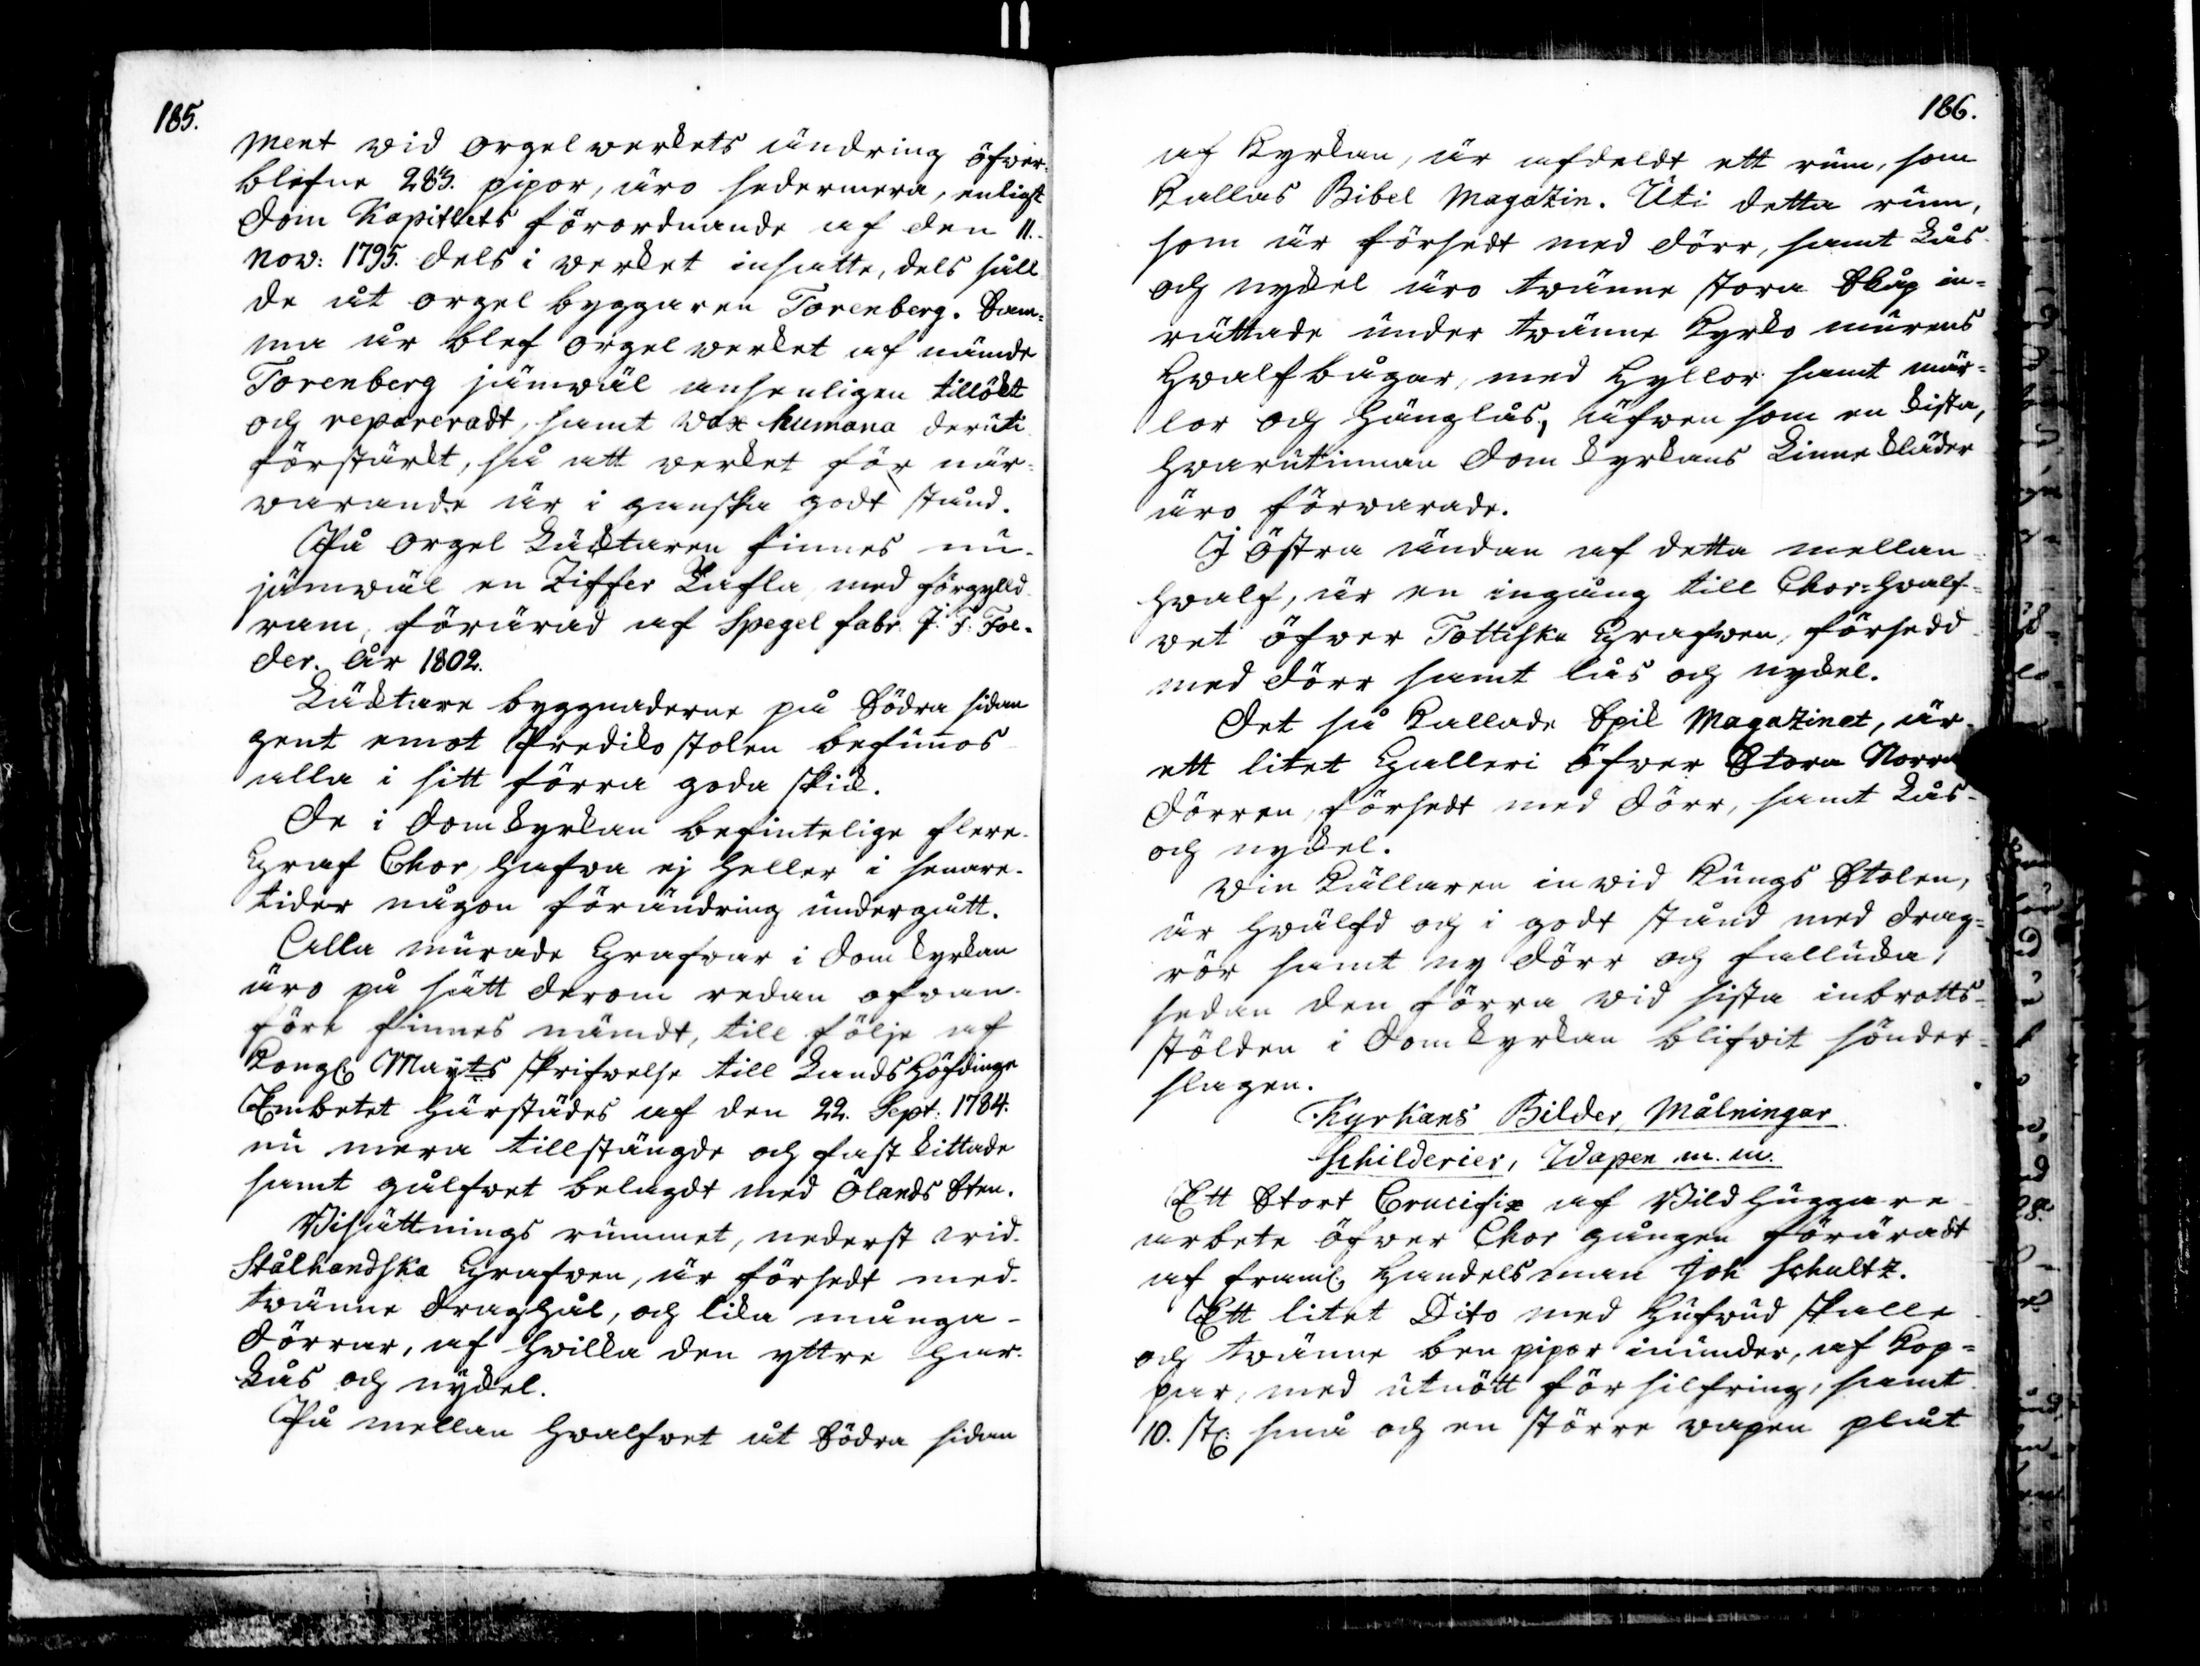 185.
ment vid orgelverkets ändring öfver-
blefne 283. pipor, äro sedermera, enligt
Dom Kapitlets förordnande af den 11.
Nov: 1795. dels i verket insatte, dels såll
de åt orgel byggaren Forenberg. Sam-
ma år blef orgel verket af nämde
Forenberg jämväl ansenligen tillökt
och repareradt, samt vox humana deruti
förstärkt, så att verket för när-
varande är i ganska godt stånd.
På Orgel Läktaren finnes nu-
jämväl en Ziffer Tafla, med förgylld
ram, förärad af Spegel fabr. J. F.
der. År 1802.
Läktare byggnaderne på Södra sidan
gent emot Prediko stolen befinnas
alla i sitt förra goda skick.
De i Domkyrkan befintelige flere
Graf Chor, hafva ej heller i senare
tider någon förändring undergått.
Alla murade Grafvar i Domkyrkan
äro på sätt derom redan ofvan-
före finnes nämdt, till följe af
Kongl. Mayts skrifvelse till Landshöfdinge
Embetet härstädes af den 22. Sept: 1784.
nu mera tillstängde och fast kittade
samt gålfvet belagdt med Ölands Sten.
Bisättnings rummet, nederst vid
Stålhandska Grafven, är försedt med
tvänne draghål, och lika många
Dörrar, af hvilka den yttre har
Lås och nyckel.
På mellan hvalfvet åt Södra sidan
186.
af Kyrkan, är afdeldt ett rum, som
Kallas Bibel Magazin. Uti detta rum,
som är försedt med dörr, samt Lås
och nyckel äro tvänne stora Skåp in-
rättade under tvänne Kyrko murens
Hvalfbågar, med Hyllor samt mär-
lor och Hänglås, äfven som en kista,
hvarutinnan Domkyrkans Linnekläder
äro förvarade.
I Östra ändan af detta mellan
hvalf, är en ingång till Chor-hvalf-
vet öfver Tottiska Grafven, försedd
med dörr samt lås och nyckel.
Det så Kallade Spik Magazinet, är
ett litet Galleri öfver Stora Norra
Dörren, försedt med dörr, samt Lås
och nyckel.
Vin Källaren invid Kungs Stolen,
är hvälfd och i godt stånd med drag-
rör samt ny dörr och fallucka,
sedan den förra vid sista inbrotts-
stölden i Domkyrkan blifvit sönder-
slagen.
Kyrkans Bilder, Målningar
Schilderier, Wapen m. m.
Ett Stort Crucifix af Bildhuggare
arbete öfver Chor gången föräradt
af framl. Handelsman Joh Schultz.
Ett litet Dito med Hufvud skalle
och tvänne ben pipor inunder, af Kop-
par, med utnött försilfring, samt
10. st. små och en större vapen plåt